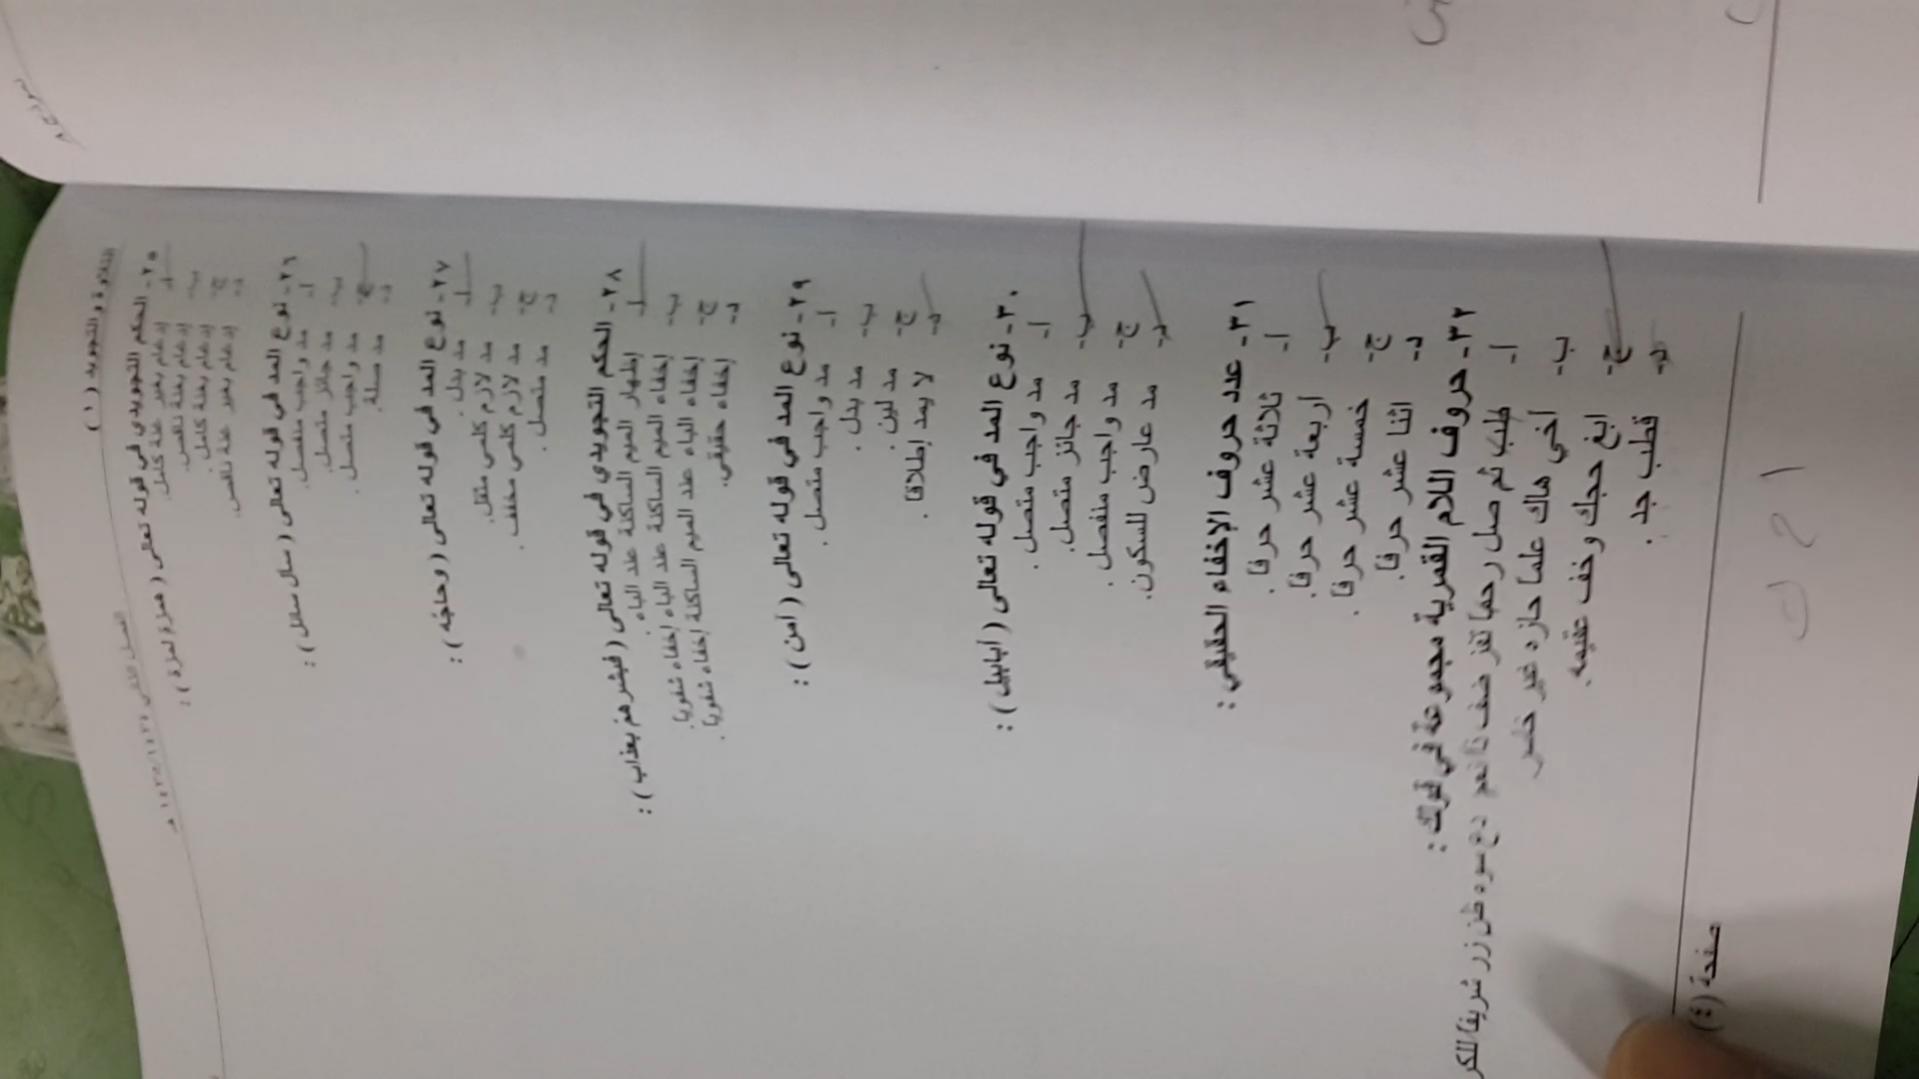 التلاوة والتجويد (١)
٢٥- الحكم التجويدي في قوله تعالى ( همزة لمزة ) :
أ- إدغام بغير غنة كامل.
ب- إدغام بغنة ناقص.
ج- إدغام بغنة كامل.
د- إدغام بغير غنة ناقص.
٢٦- نوع المد في قوله تعالى ( سأل سائل ) :
أ- مد واجب منفصل.
ب- مد جائز متصل.
ج- مد واجب متصل.
د- مد صلة.
٢٧- نوع المد في قوله تعالى ( وحاجّه ) :
أ- مد بدل.
ب- مد لازم كلمي مثقل.
ج- مد لازم كلمي مخفف.
د- مد متصل.
٢٨- الحكم التجويدي في قوله تعالى ( فبشرهم بعذاب ) :
أ- إظهار الميم الساكنة عند الباء.
ب- إخفاء الميم الساكنة عند الباء إخفاء شفوياً.
ج- إخفاء الباء عند الميم الساكنة إخفاء شفوياً.
د- إخفاء حقيقي.
٢٩- نوع المد في قوله تعالى ( آمن ) :
أ- مد واجب متصل.
ب- مد بدل.
ج- مد لين.
د- لا يمد إطلاقا.
٣٠- نوع المد في قوله تعالى ( أبابيل ) :
أ- مد واجب متصل.
ب- مد جائز متصل.
ج- مد واجب منفصل.
د- مد عارض للسكون.
٣١- عدد حروف الإخفاء الحقيقي :
أ- ثلاثة عشر حرفاً.
ب- أربعة عشر حرفاً.
ج- خمسة عشر حرفاً.
د- اثنا عشر حرفاً.
٣٢- حروف اللام القمرية مجموعة في قولك :
أ- طب ثم صل رحماً تفز ضف ذا نعم دع سوء ظن زر شريفاً للكر
ب- أخي هاك علماً حازه غير خاسر
ج- ابغ حجك وخف عقيمه.
د- قطب جد.
صفحة (٤)